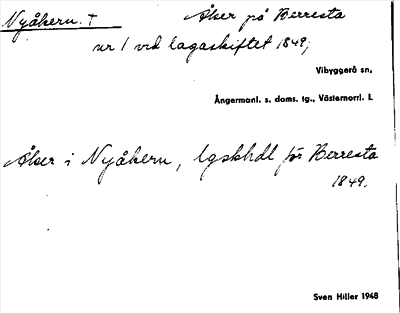 Nyåkern. + Åker på Berresta
nr 1 vid lagaskiftet 1849;
Vibyggerå sn,
Ångermanl. s. doms. tg., Västernorrl. l.
Åker i Nyåkern, lgskhdl för Berresta
1849.
Sven Hiller 1948